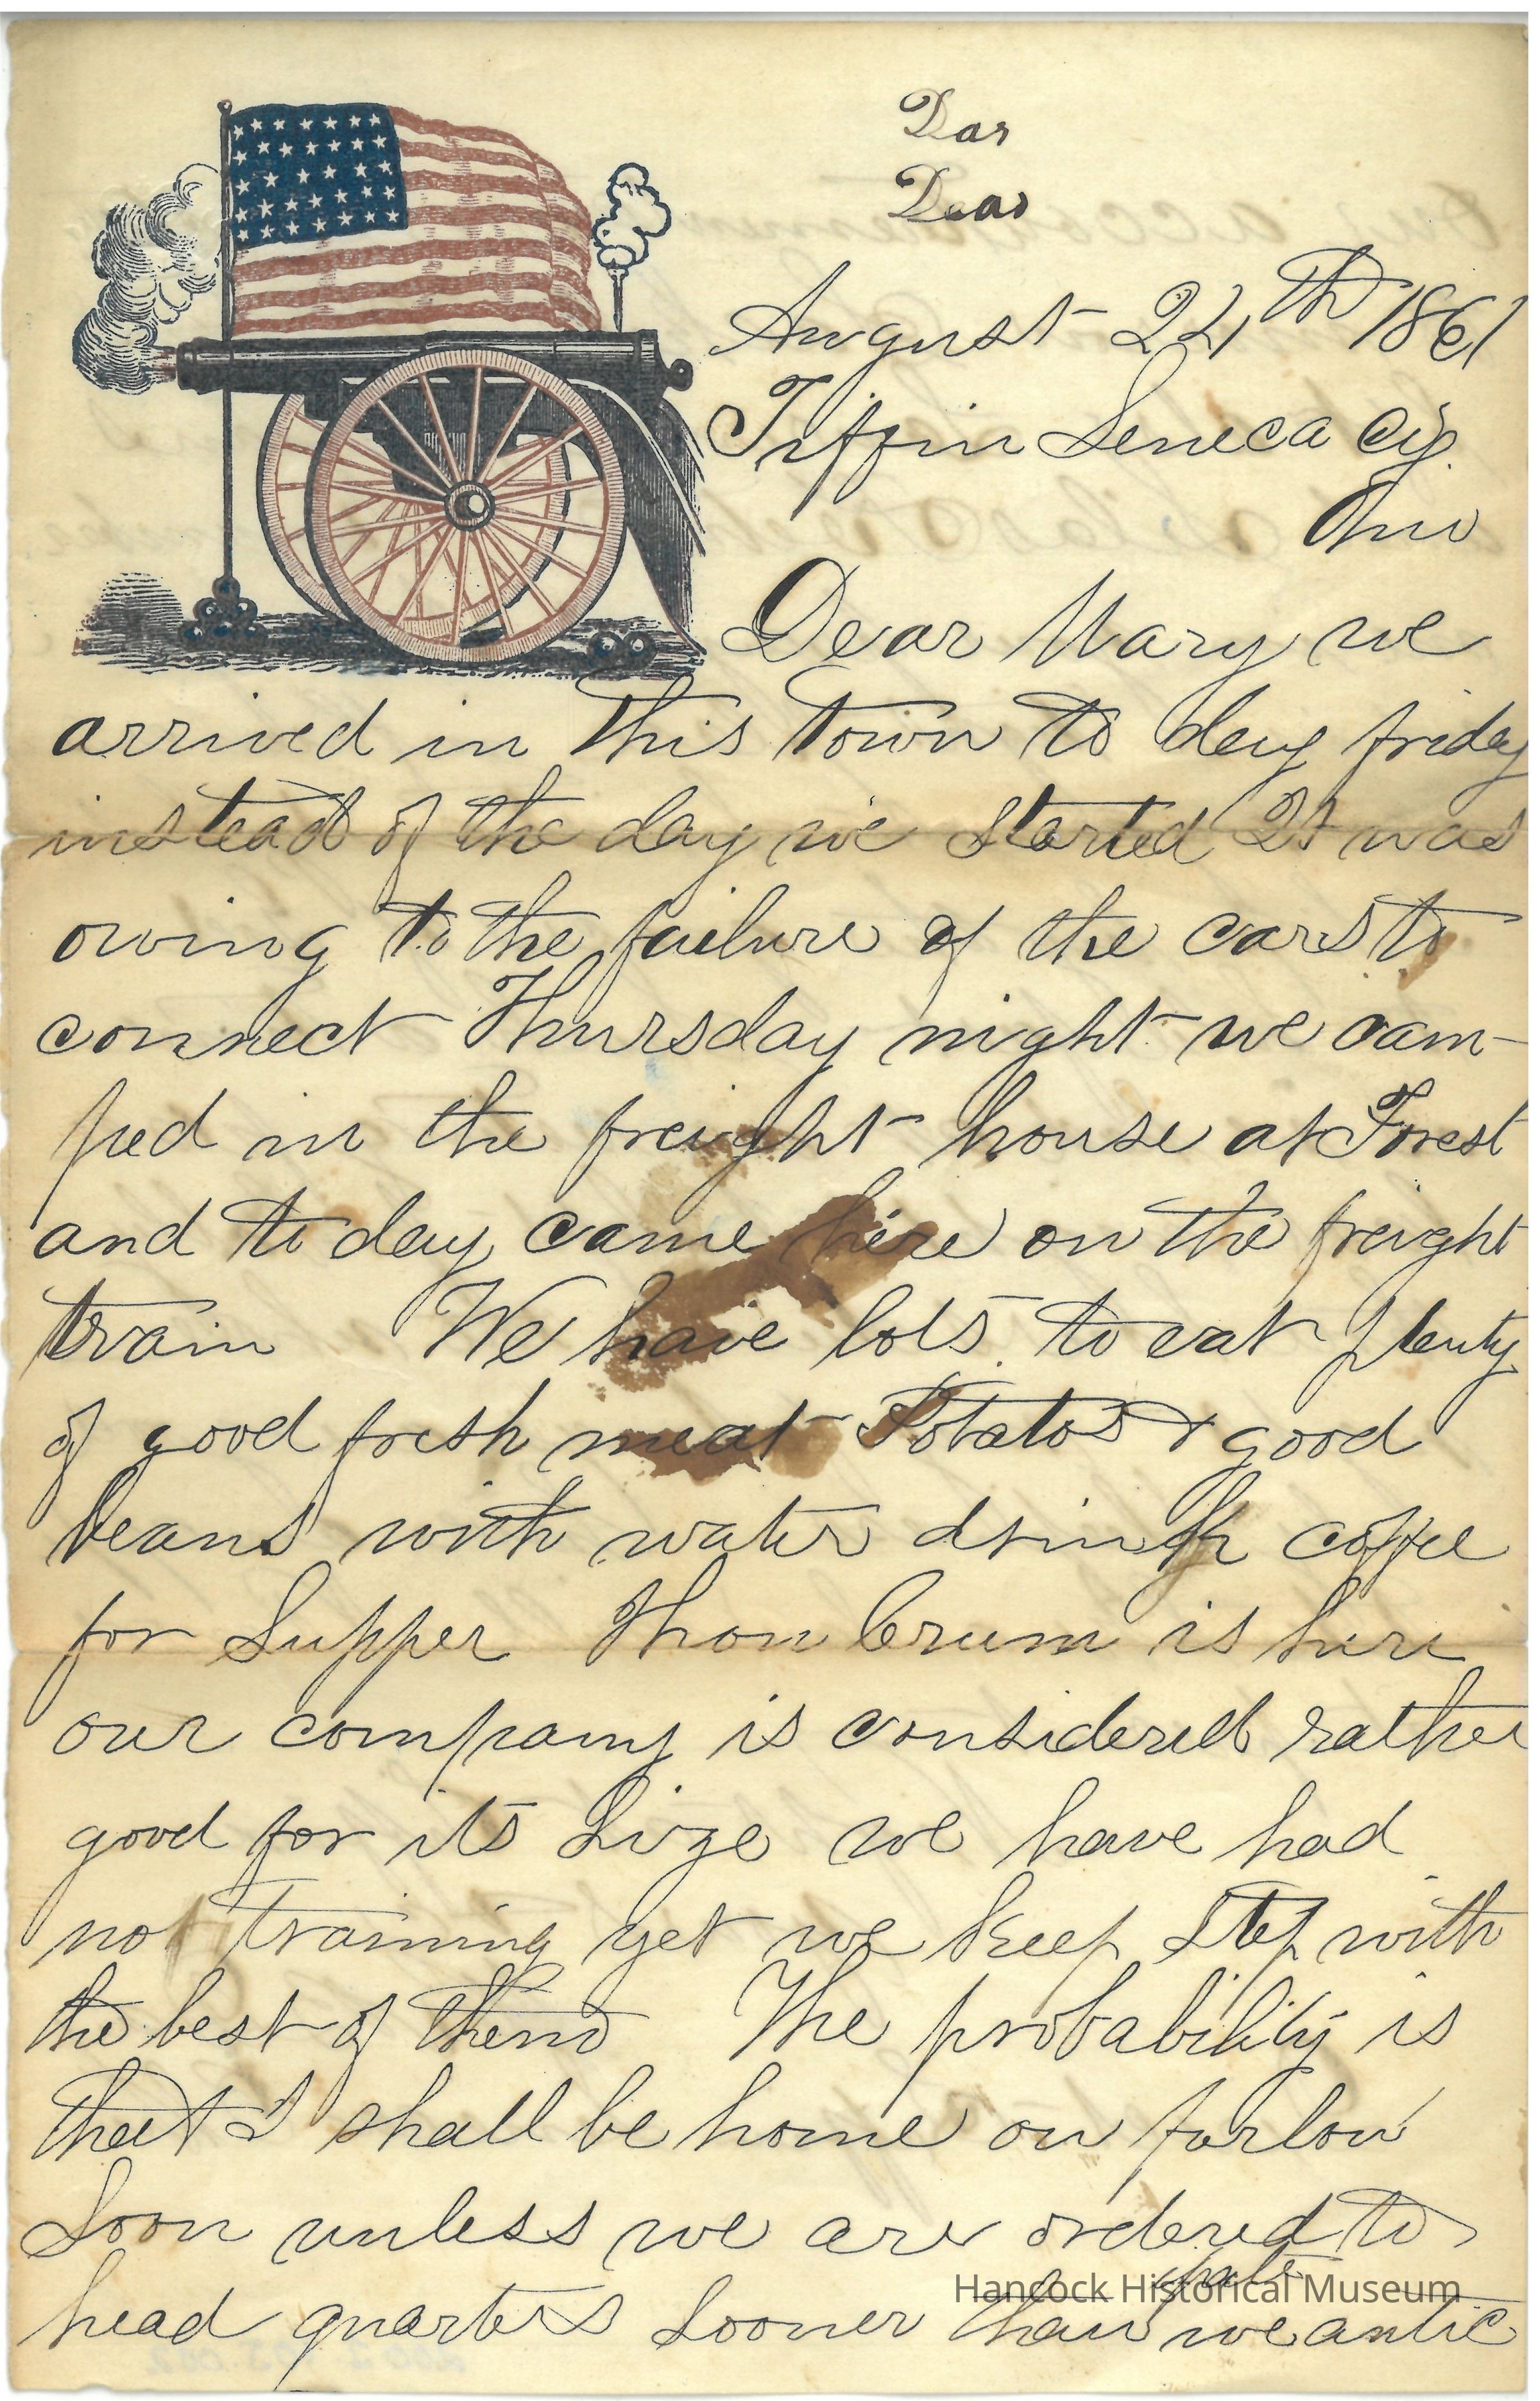 Dar
Dear
August 24th 1861
Tiffin Seneca Co.
Ohio
Dear Mary we
arrived in this town to day friday
instead of the day we started It was
owing to the failure of the cars to
connect Thursday night we cam-
ped in the freight house at Forest
and to day came here on the freight
train We have lots to eat plenty
of good fresh meat Potatos & good
beans with water drink coffee
for Supper Thom Crum is here
our company is considered rather
good for its Size we have had
not training yet we keep step with
the best of them The probability is
that I shall be home on furlow
Soon unless we are ordered to
pate
head quarters sooner than we antic
Hancock Historical Museum